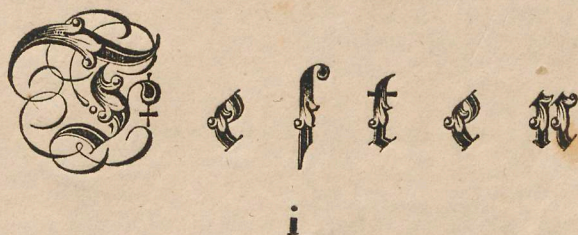 Feſten
i